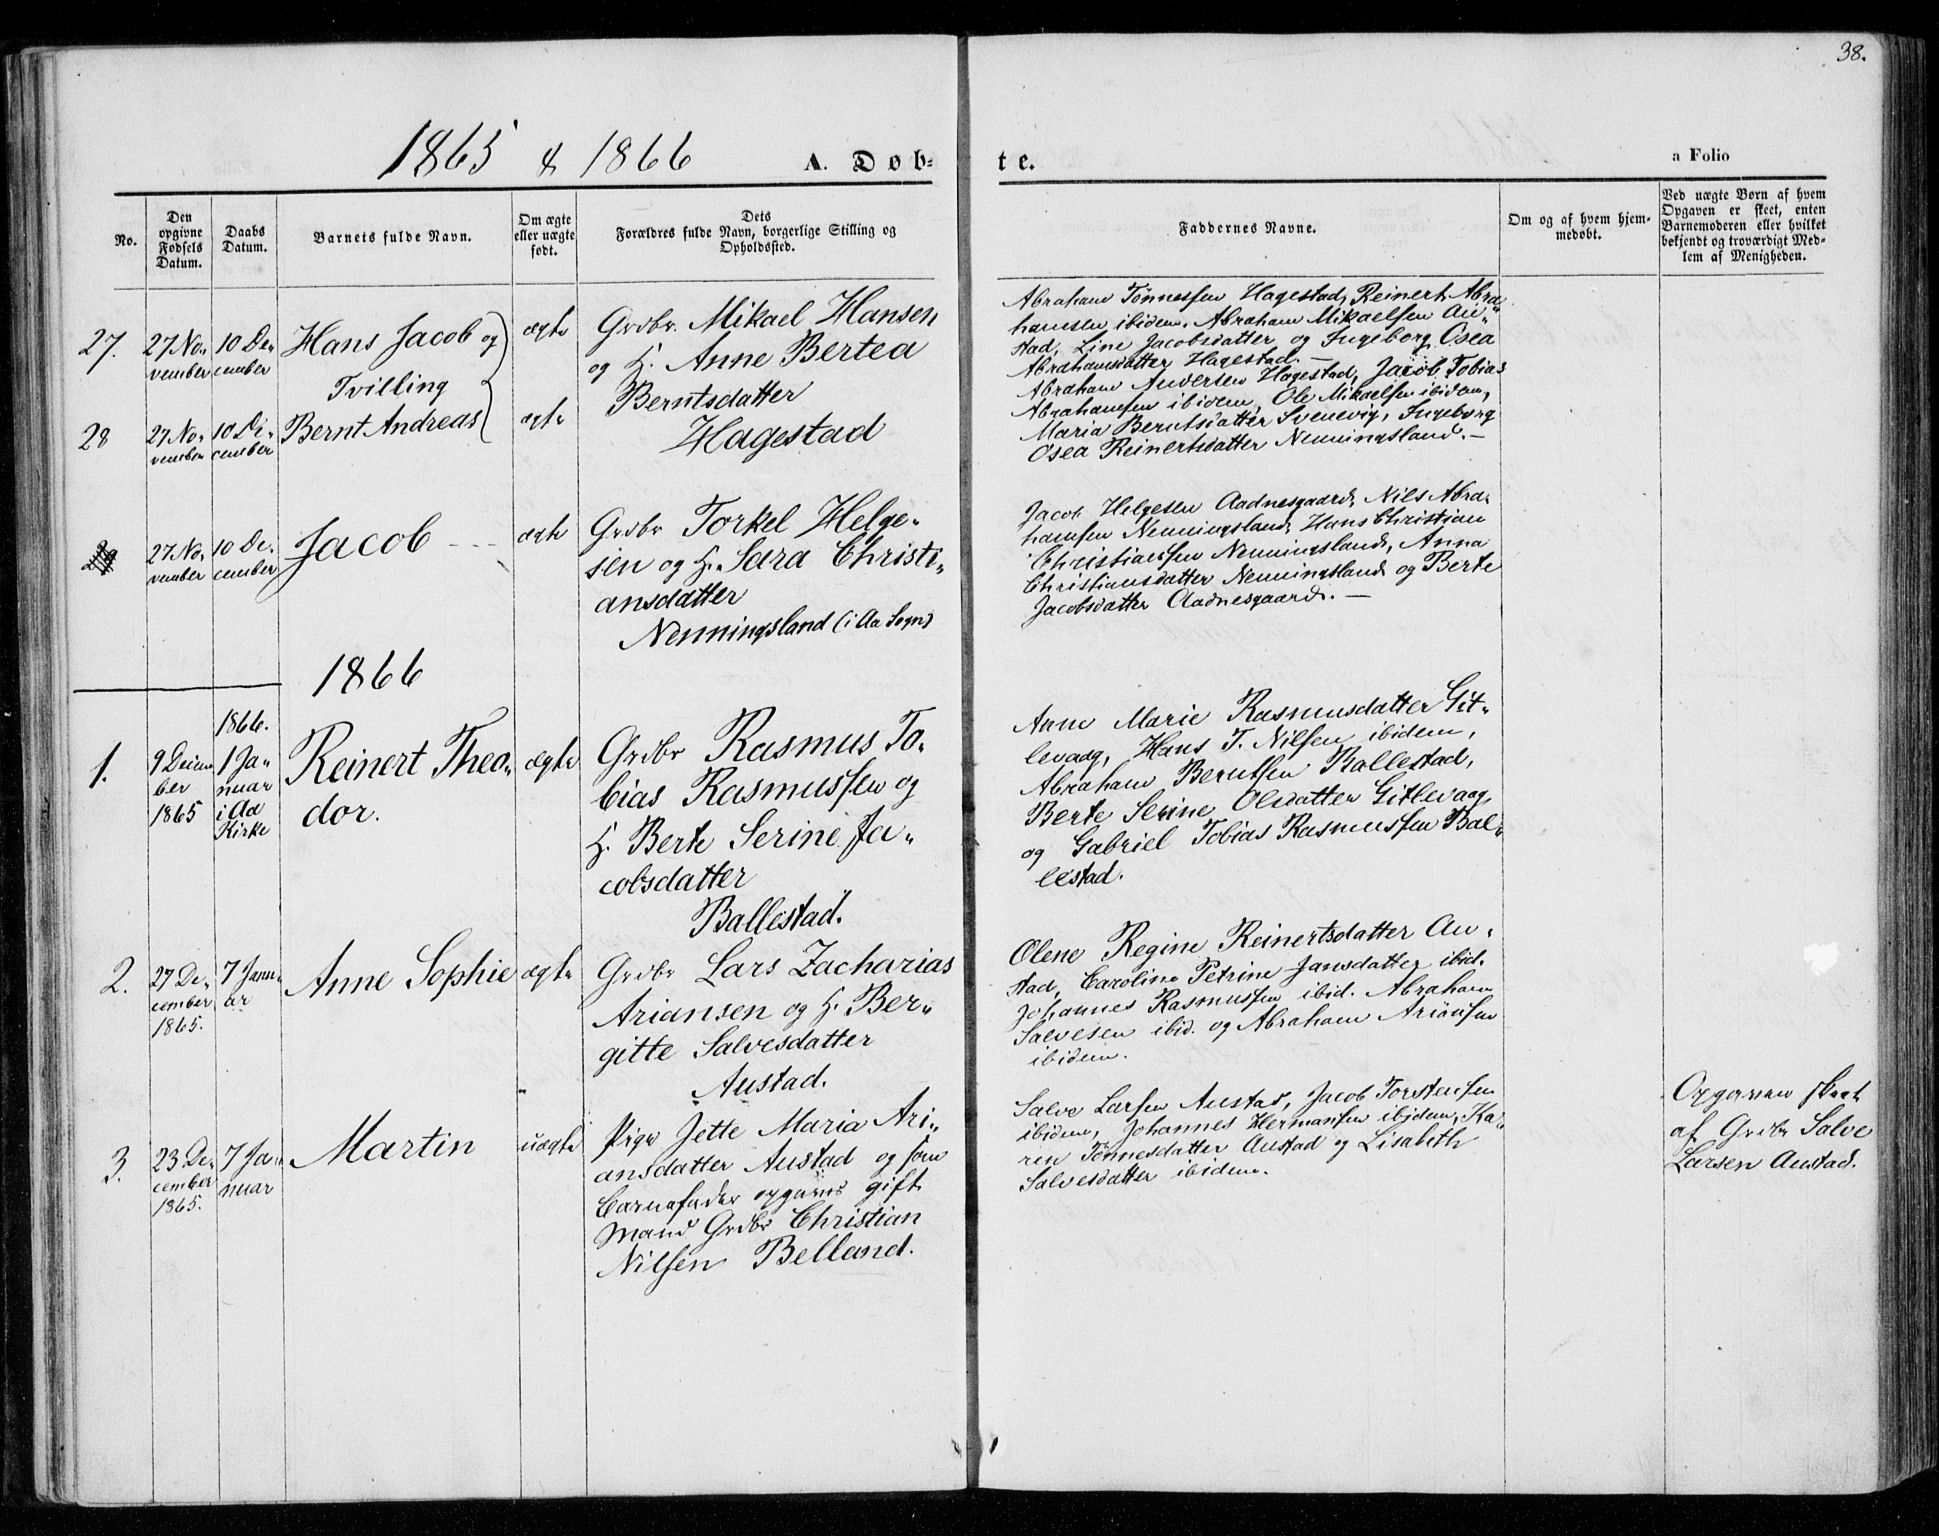 38.
1865 & 1866
A. Døb-
te.
a Folio
No.
Den
opgivne
Fødsels
Datum.
Daabs
Datum.
Barnets fulde Navn.
Om ægte
eller uægte
født.
Dets
Forældres fulde Navn, borgerlige Stilling og
Opholdssted.
Faddernes Navne.
Om og af hvem hjem-
medøbt.
Ved uægte Børn af hvem
Opgaven er skeet, enten
Barnemoderen eller hvilket
bekjendt og troværdigt Med-
lem af Menigheden.
27.
27 No-
vember
10 De-
cember
Hans Jacob og
Tvilling
ægte
Grdbr. Mikael Hansen
og H. Anne Bertea
Berntsdatter
Hagestad
Abraham Tønnessen Hagestad, Reinert Abra-
hamsen ibidem. Abraham Mikaelsen Au-
stad, Line Jacobsdatter og Ingeborg Osea
Abrahamsdatter Hagestad. —
28
27 No-
vember
10 De-
cember
Bernt Andreas
ægte
Abraham Andersen Hagestad, Jacob Tobias
Abrahamsen ibidem, Ole Mikaelsen ibidem,
Maria Berntsdatter Svenevig, Ingeborg
Osea Reinertsdatter Nenningsland. —
27 No-
vember
10 De-
cember
Jacob
ægte
Grdbr Torkel Helge-
sen og H. Sara Christi-
ansdatter
Nenningsland (i Aa Sogn)
Jacob Helgesen Aadnesgaard, Nils Abra-
hamsen Nenningsland, Hans Christian
Christiansen Nenningsland, Anna
Christiansdatter Nenningsland og Berte
Jacobsdatter Aadnesgaard. —
1866
1.
9 Decem
ber
1865
1866.
1 Ja-
nuar
i Aa
Kirke
Reinert Theo-
dor.
ægte
Grdbr Rasmus To-
bias Rasmussen og
H. Berte Serine Ja-
cobsdatter
Ballestad.
Anne Marie Rasmusdatter Git-
levaag, Hans T. Nilsen ibidem,
Abraham Berntsen Ballestad,
Berte Serine Olsdatter Gitlevaag
og Gabriel Tobias Rasmussen Bal-
lestad.
2.
27 De-
cember
1865.
7 Janu-
ar
Anne Sophie
ægte
Grdbr Lars Zacharias
Ariansen og H. Ber-
gitte Salvesdatter
Austad.
Olene Regine Reinertsdatter Au-
stad, Caroline Petrine Jansdatter ibid.
Johannes Rasmussen ibid. Abraham
Salvesen ibid. og Abraham Ariansen
ibidem.
3.
23 De-
cember
1865.
7 Ja-
nuar
Martin
uægte
Pige Jette Maria Ari-
ansdatter Austad og som
Barnefader opgives gift
Mand Grdbr Christian
Nilsen Belland.
Salve Larsen Austad, Jacob Torstensen
ibidem, Johannes Hermansen ibidem, Ka-
ren Tønnesdatter Austad og Lisabeth
Salvesdatter ibidem.
Opgaven skeet
af Grdbr Salve
Larsen Austad.